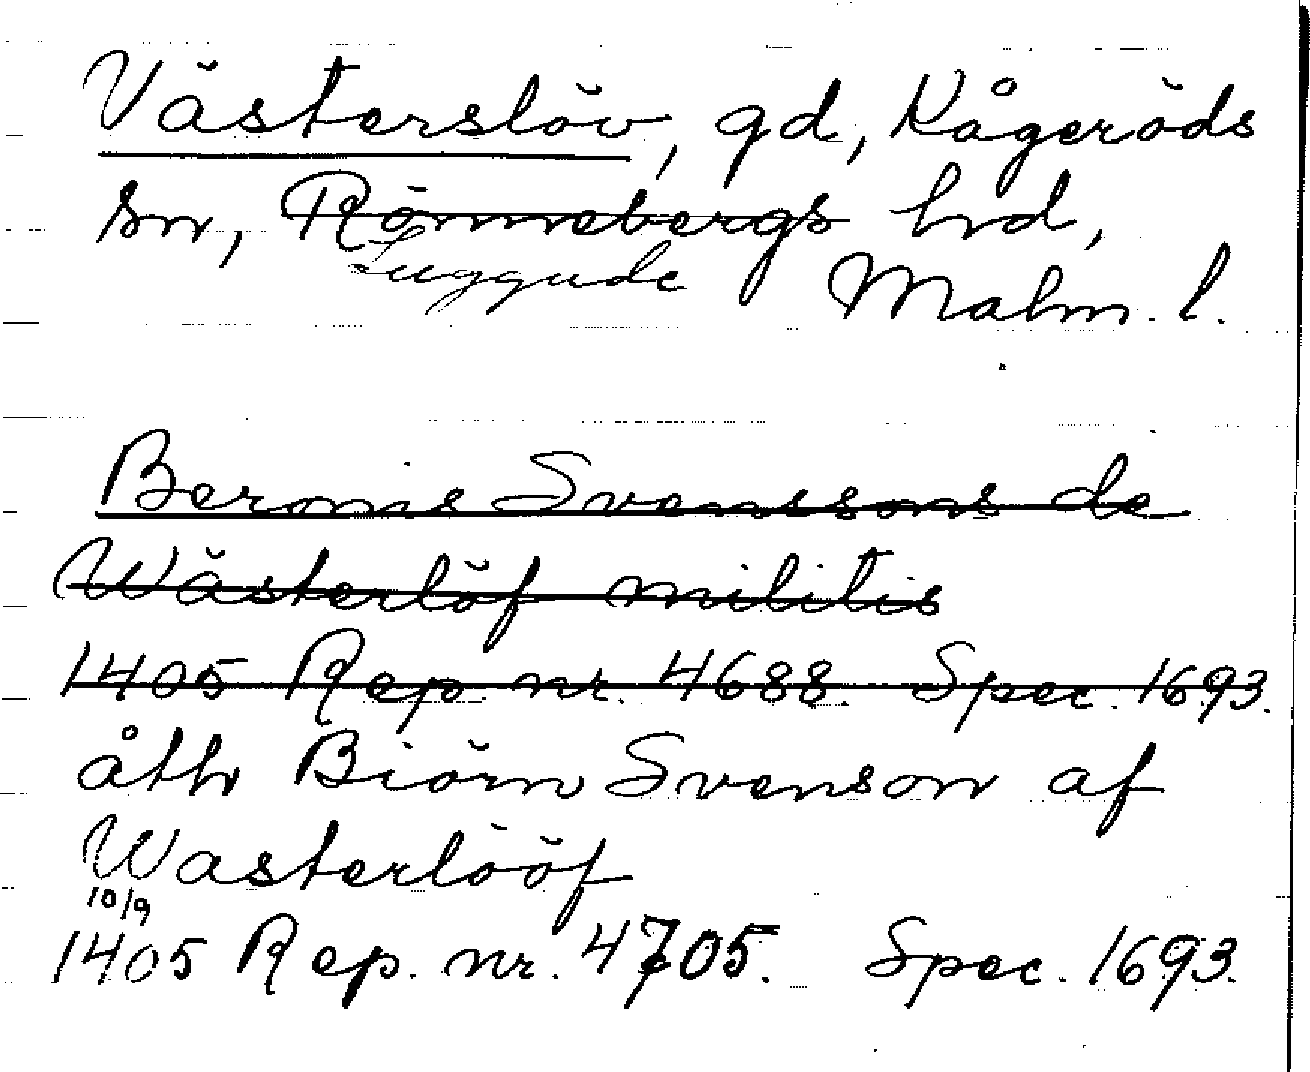 Västerslöv, gd, Kågeröds
sn, Rönnebergs hrd,
Luggude Malm. l.
Beronis Svenssons de
Wästerlöf militis
1405 Rep. nr. 4688. Spec. 1693.
åth Biörn Svenson af
Wasterlööf
10/9
1405 Rep. nr. 4705. Spec. 1693.